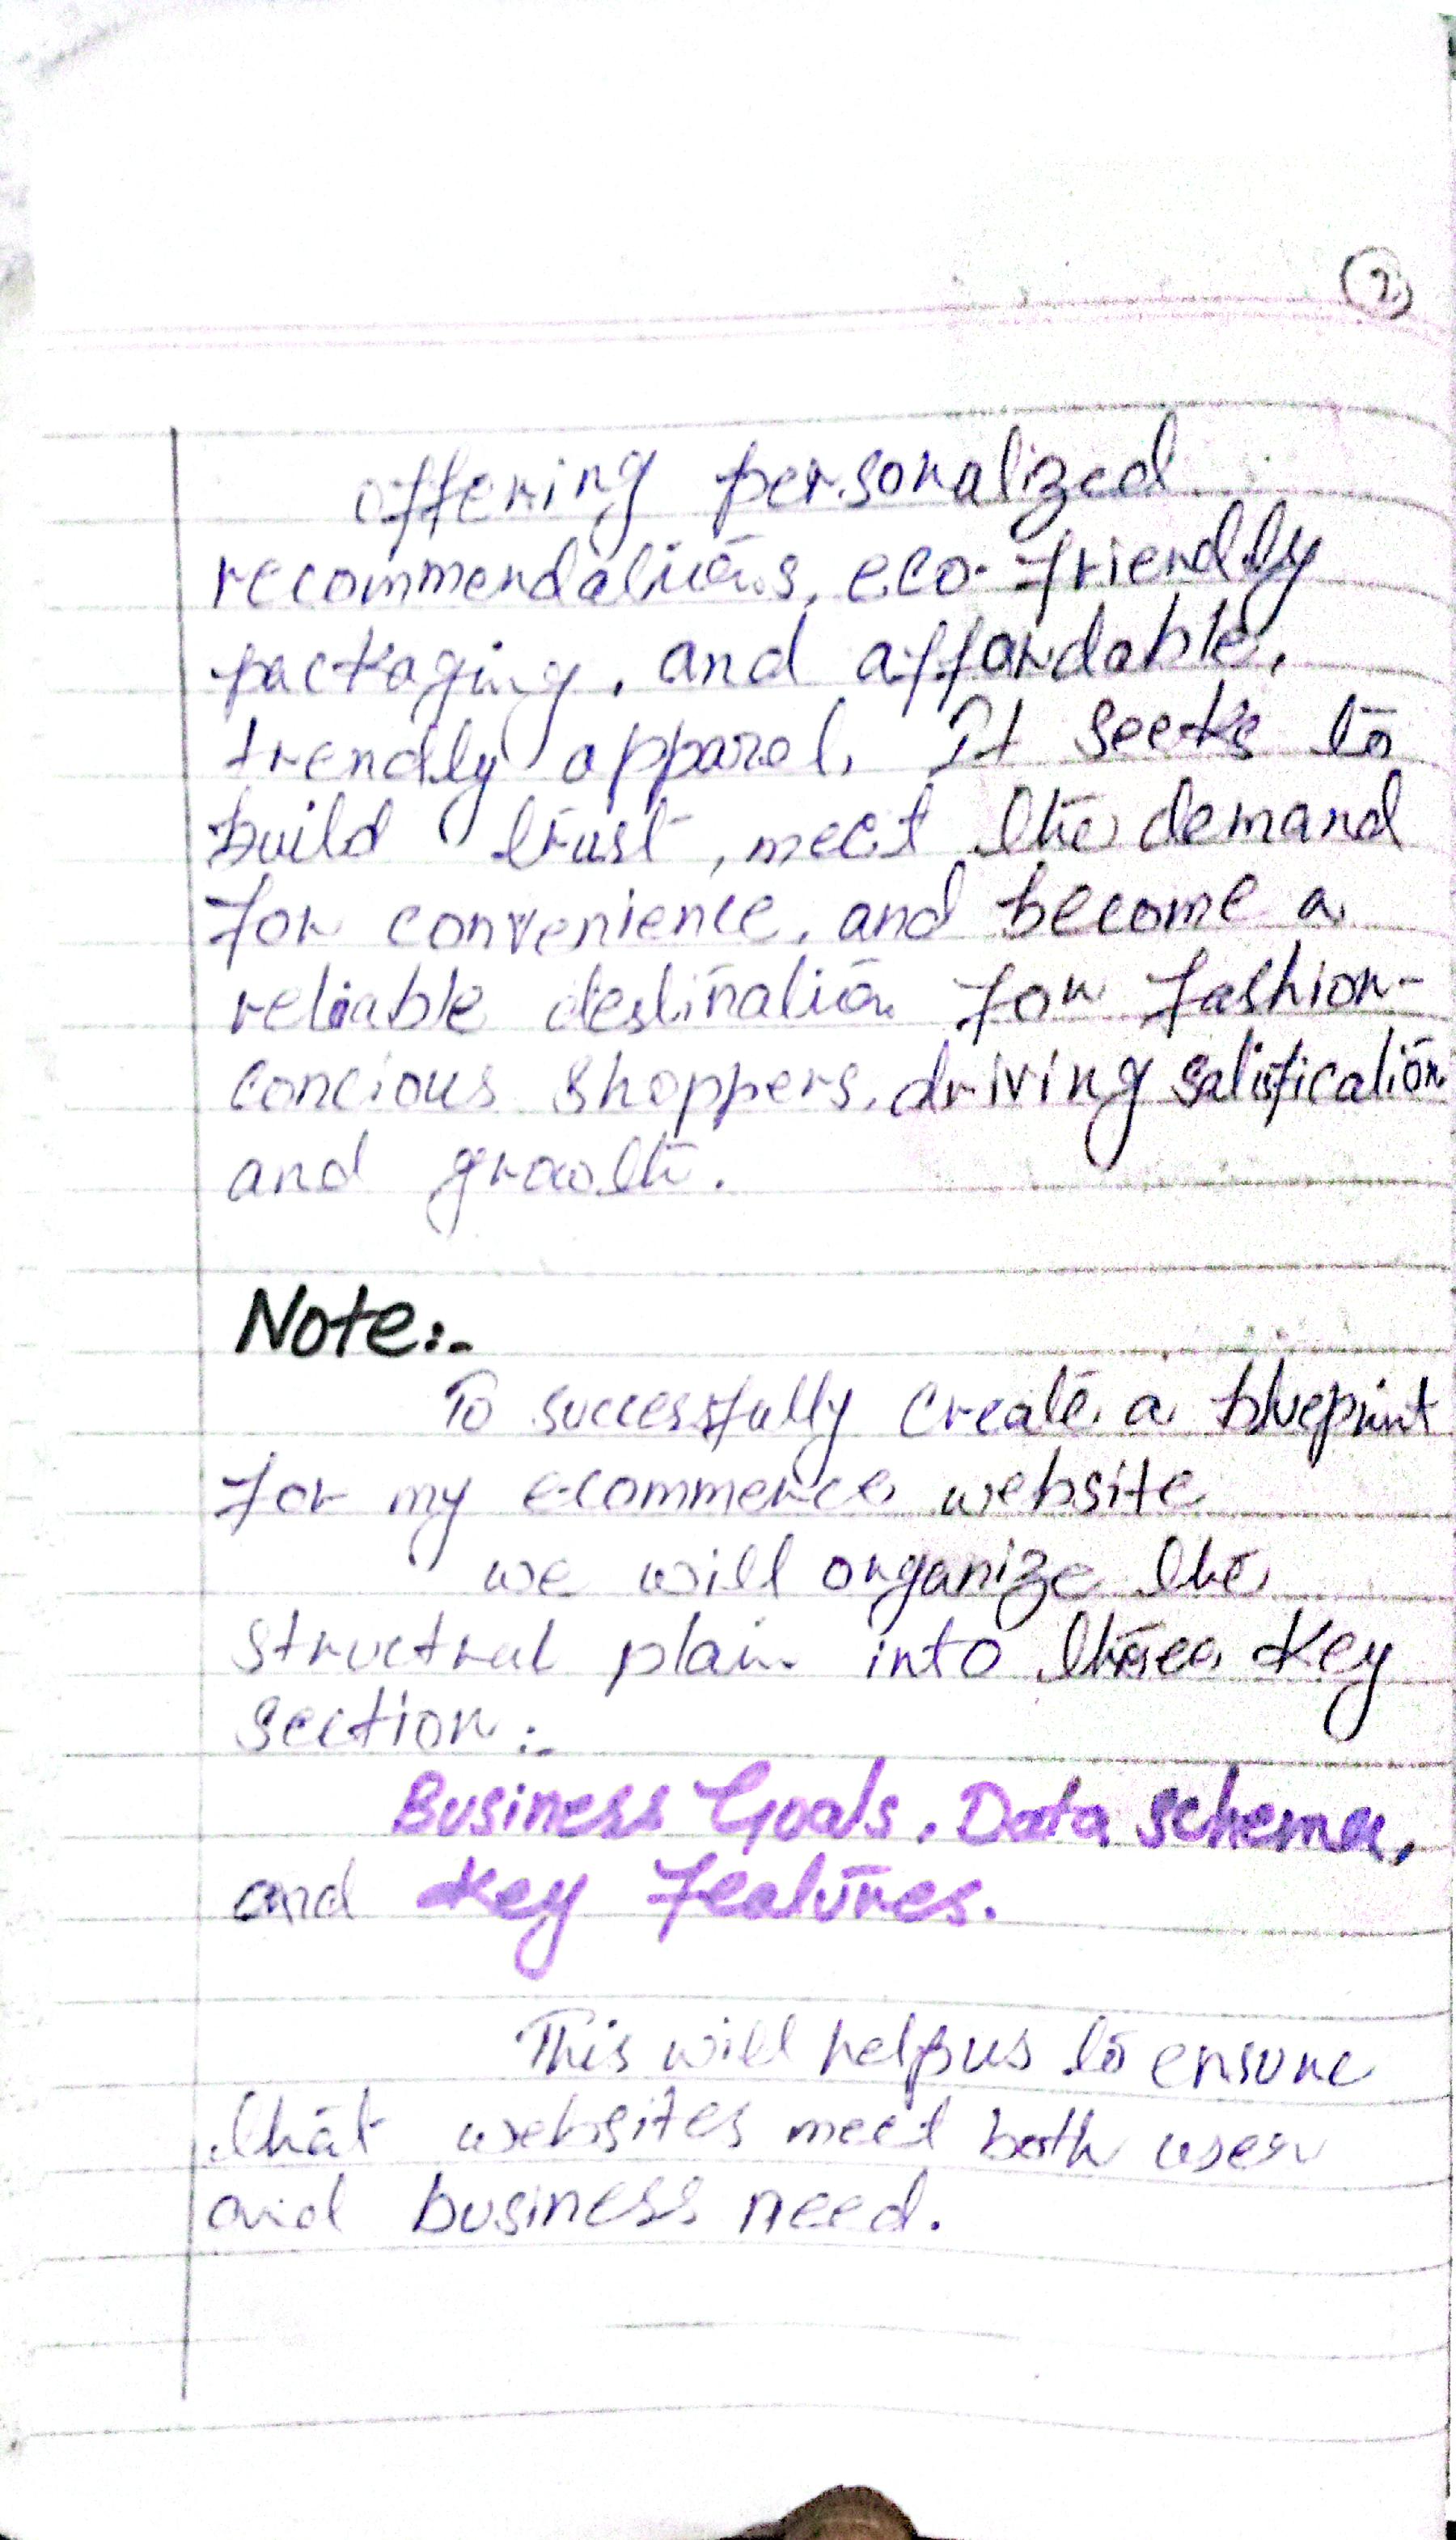 2
offering personalized
recommendations, eco-friendly
packaging, and affordable,
trendly apparel, It seeks to
build trust, meet the demand
for convenience, and become a
reliable destination for fashion-
concious shoppers, driving satisfication
and growth.
Note:-
To successfully create a blueprint
for my e-commerce website
we will organize the
structral plan into three key
section:-
Business Goals, Data schema,
and key features.
This will help us to ensure
that websites meet both user
and business need.